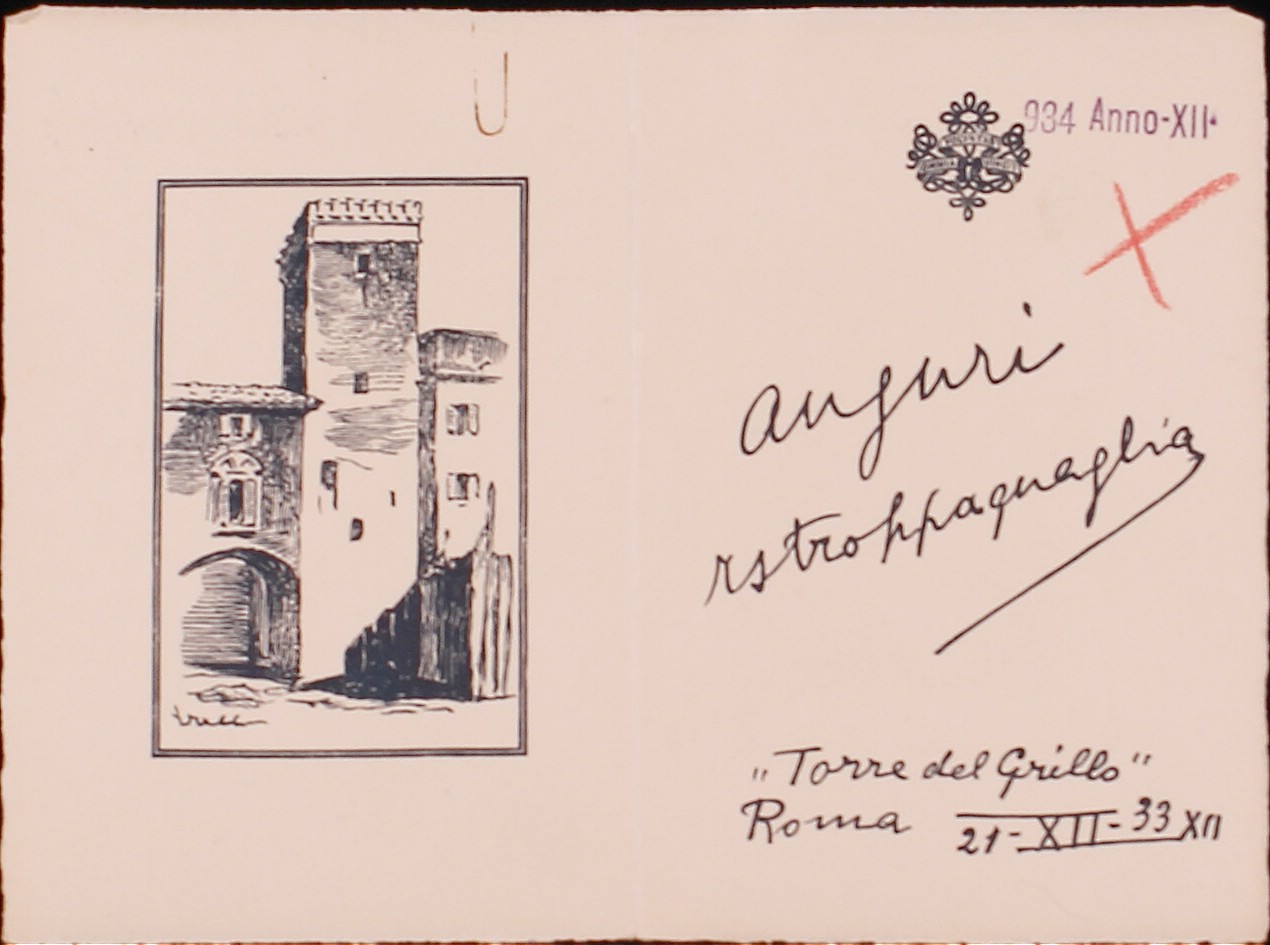 934 Anno-XII.
auguri
rstroppaquaglia
"Torre del Grillo"
Roma 21-XII-33 XII